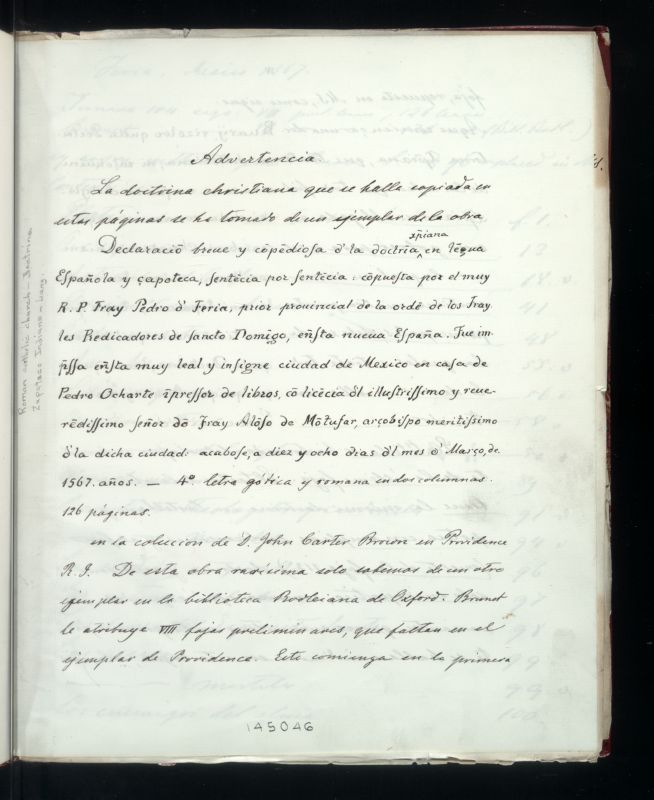 Advertencia.
La doctrina christiana que se halla copiada en
estas páginas se ha tomado de un ejemplar de la obra
xp̃iana
Declaraciõ breue y cõpẽdioſa d̃ la doctrĩa ‸ en lẽgua
Eſpañola y çapoteca, ſentẽcia por ſentẽcia: cõpueſta por el muy
R. P. Fray Pedro d̃ Feria, prior provincial de la ordẽ de los Fray
les Predicadores de ſancto Domĩgo, eñſta nueua Eſpaña. Fue im-
p̃ſſa eñſta muy leal y inſigne ciudad de Mexico en caſa de
Pedro Ocharte ĩpreſſor de libros, cõ licẽcia d̃l illuſtriſſimo y reue-
rẽdiſſimo ſeñor dõ Fray Alõſo de Mõtufar, arçobiſpo meritiſſimo
d̃ la dicha ciudad: acaboſe, a diez y ocho dias d̃l mes d̃ Março, de
1567. años. — 4º. letra gótica y romana en dos columnas.
126 páginas.
en la coleccion de D. John Carter Brown en Providence
R. I. De esta obra rarísima solo sabemos de un otro
ejemplar en la biblioteca Bodleiana de Oxford. Brunet
le atribuye VIII fojas preliminares, que faltan en el
ejemplar de Providence. Este comienza en la primera
145046
Roman catholic church - Doctrina
Zapoteco Indians - Lang.